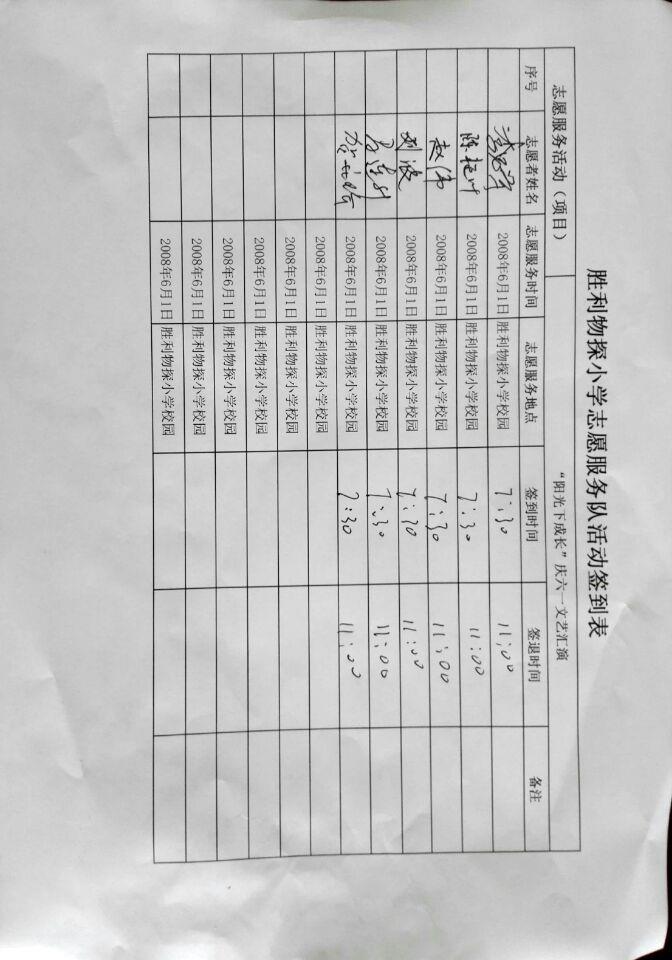 胜利物探小学志愿服务队活动签到表
志愿服务活动（项目） “阳光下成长”庆六一文艺汇演
序号 志愿者姓名 志愿服务时间 志愿服务地点 签到时间 签退时间 备注
2008年6月1日 胜利物探小学校园 7:30 11:00
陈艳叶 2008年6月1日 胜利物探小学校园 7:30 11:00
赵伟 2008年6月1日 胜利物探小学校园 7:30 11:00
刘波 2008年6月1日 胜利物探小学校园 7:30 11:00
2008年6月1日 胜利物探小学校园 7:30 11:00
2008年6月1日 胜利物探小学校园 7:30 11:00
2008年6月1日 胜利物探小学校园
2008年6月1日 胜利物探小学校园
2008年6月1日 胜利物探小学校园
2008年6月1日 胜利物探小学校园
2008年6月1日 胜利物探小学校园
2008年6月1日 胜利物探小学校园